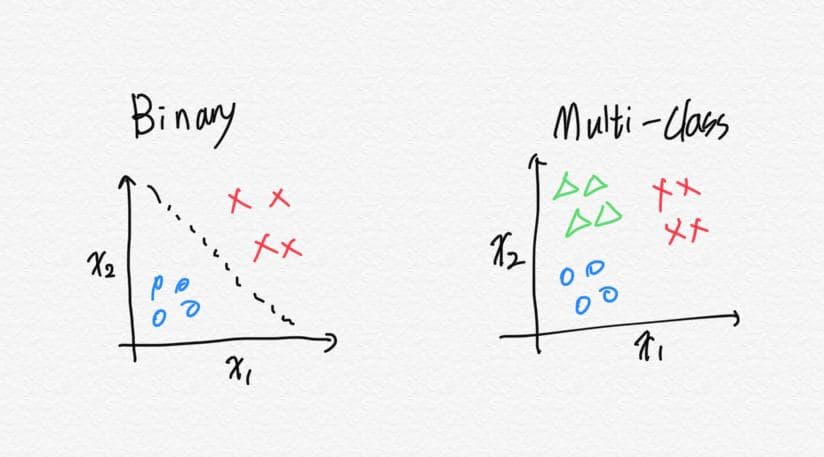 Binary
x₂
x₁
Multi-class
x₂
x₁